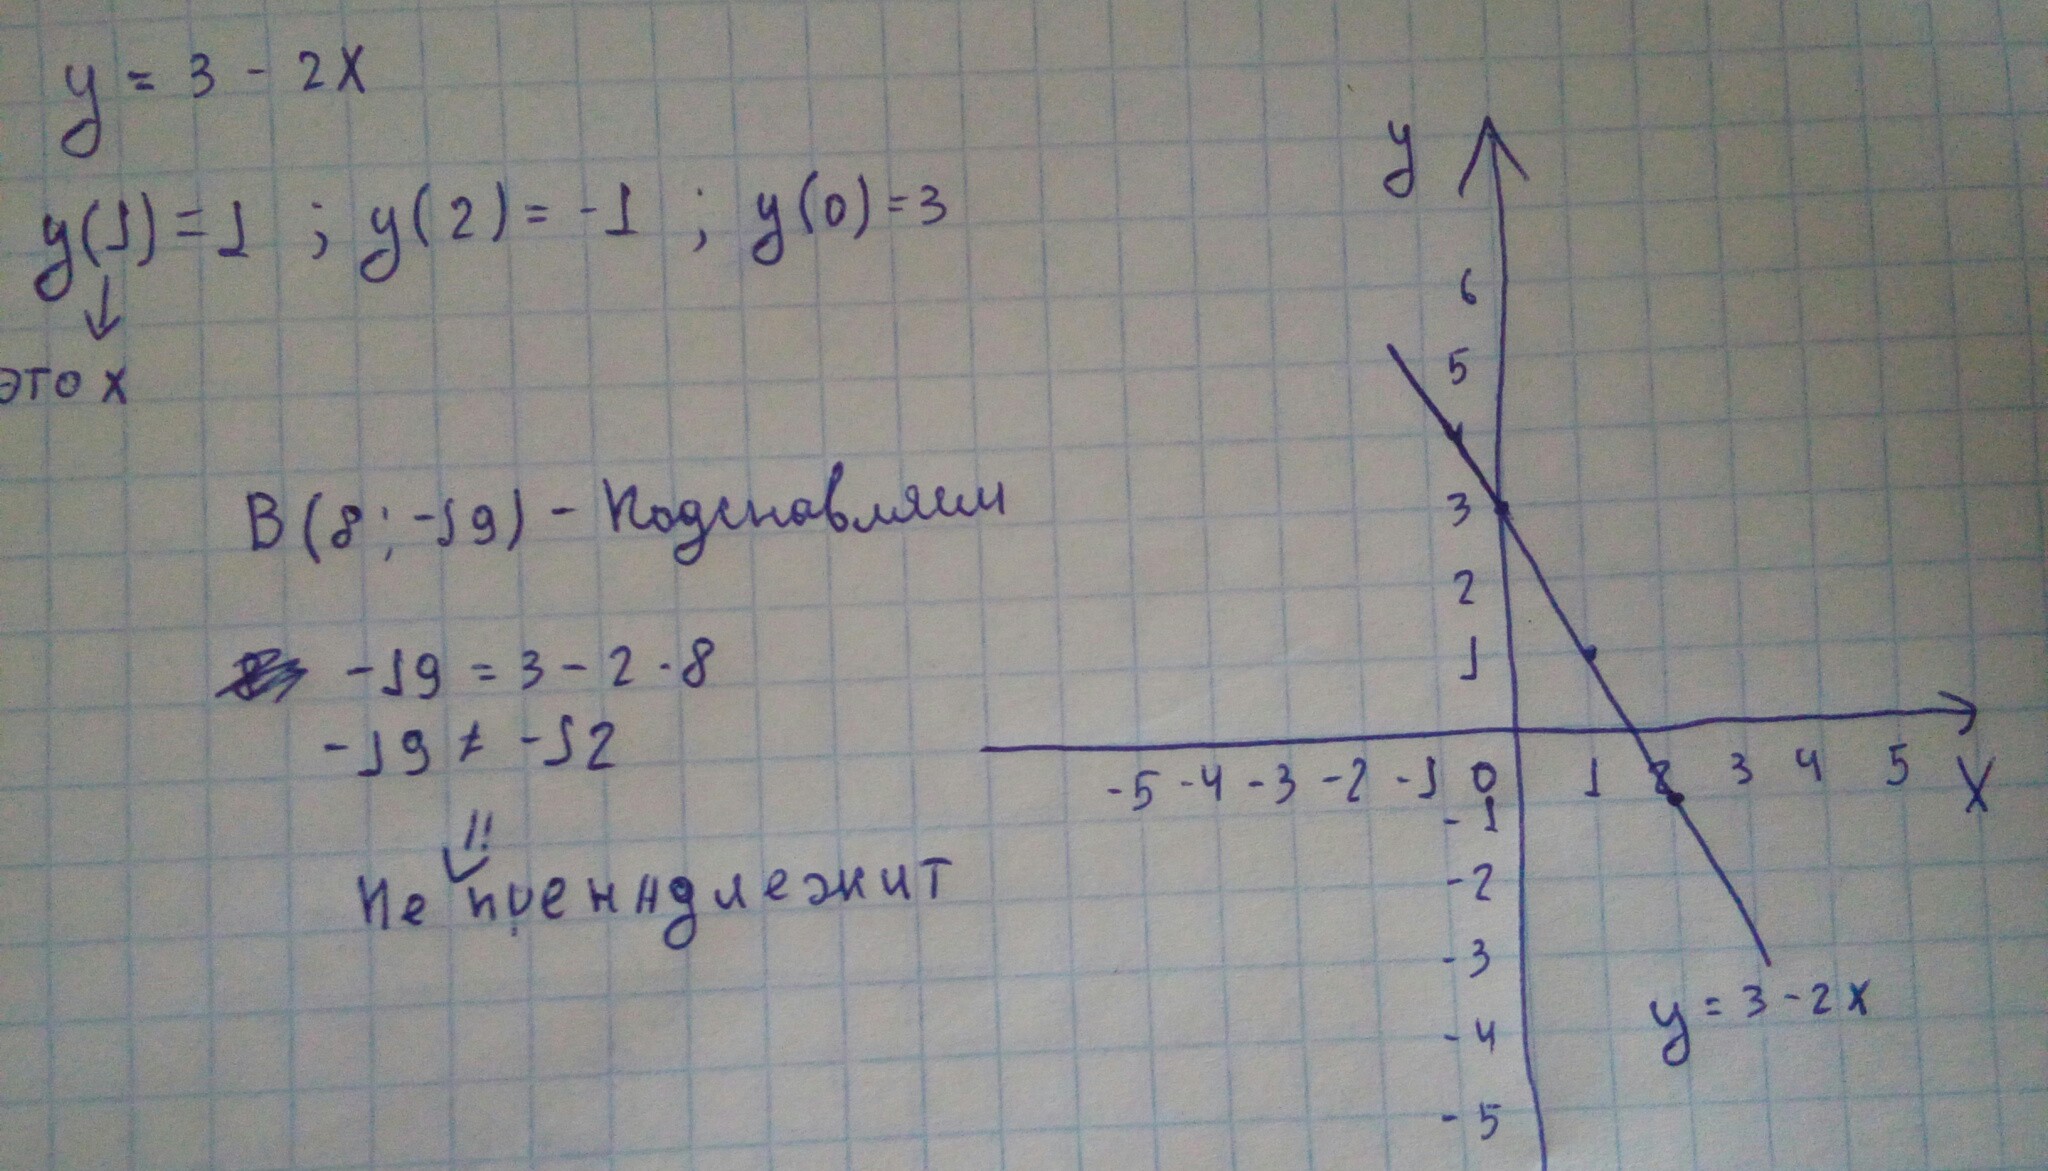 y = 3 - 2x
y(1) = 1 ; y(2) = -1 ; y(0) = 3
↓
это x
B(8; -19) - Подставляем
-19 = 3 - 2 · 8
-19 ≠ -12
!!
Не пренадлежит
y
6
5
3
2
1
-5 -4 -3 -2 -1 0 1 2 3 4 5 X
-1
-2
-3
y = 3 - 2x
-4
-5